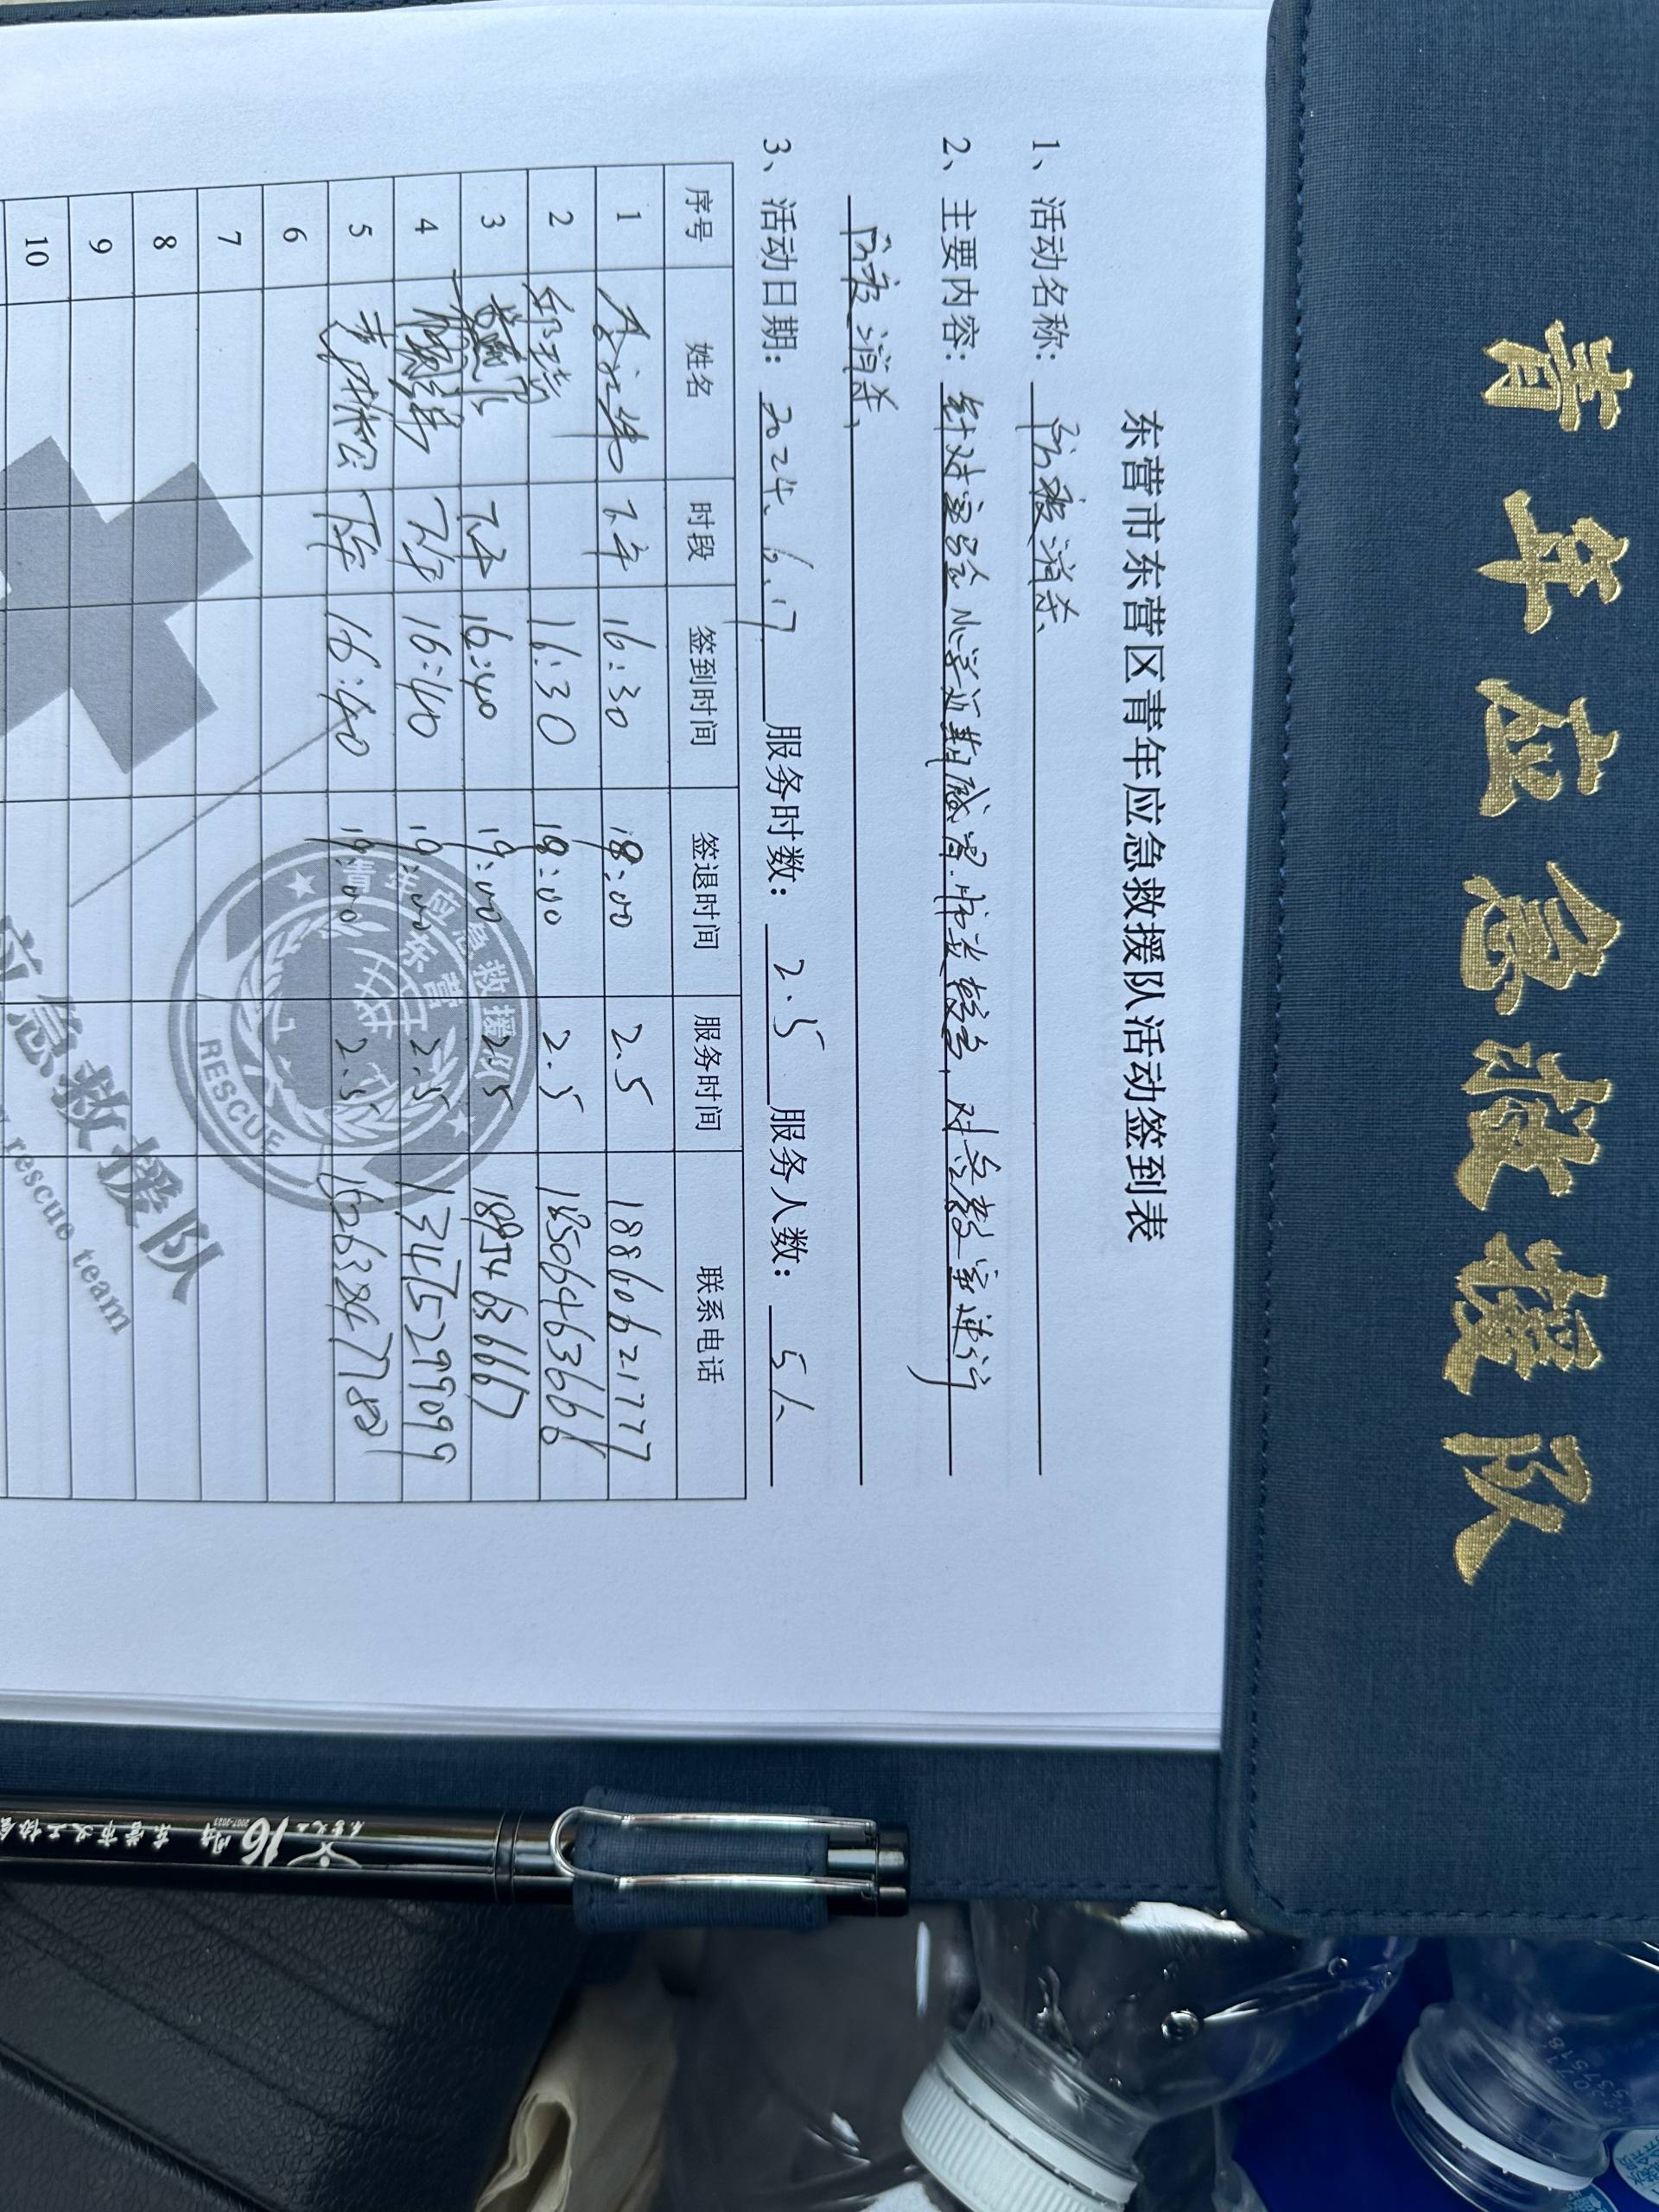 青年应急救援队
东营市东营区青年应急救援队活动签到表
1、活动名称：防疫消杀
2、主要内容：针对实验小学近期感冒，对各教室进行
防疫消杀，
3、活动日期：2024.6.17 服务时数：2.5 服务人数：5人
序号 姓名 时段 签到时间 签退时间 服务时间 联系电话
1 下午 16:30 18:00 2.5 18860621777
2 16:30 18:00 2.5 18506463666
3 下午 16:40 19:00 2.5 18954636667
4 下午 16:40 19:00 2.5 13475299099
5 下午 16:40 19:00 2.5
6
7
8
9
10
青年应急救援队
东营
RESCUE
应急救援队
rescue team
16周年
2007-2023
东营市义工协会